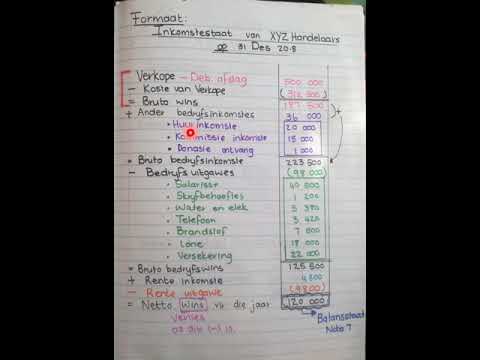 Formaat:
Inkomstestaat van XYZ Handelaars
op 31 Des 20.8
Verkope - Deb. afslag 500 000
- Koste van Verkope (312 500)
= Bruto wins 187 500
+ Ander bedryfsinkomstes 36 000
• Huurinkomste 20 000
• Kommissie inkomste 15 000
• Donasie ontvang 1 000
= Bruto bedryfsinkomste 223 500
- Bedryfsuitgawes (98 000)
• Salarisse 40 500
• Skryfbehoeftes 1 200
• Water en elek
• Telefoon 3 420
• Brandstof
• Lone 18 000
• Versekering 22 000
= Bruto bedryfswins 125 500
+ Rente inkomste
- Rente uitgawe
= Netto Wins vir die jaar 120 000
Verlies
as dit (-) is.
Balansstaat
Nota 7